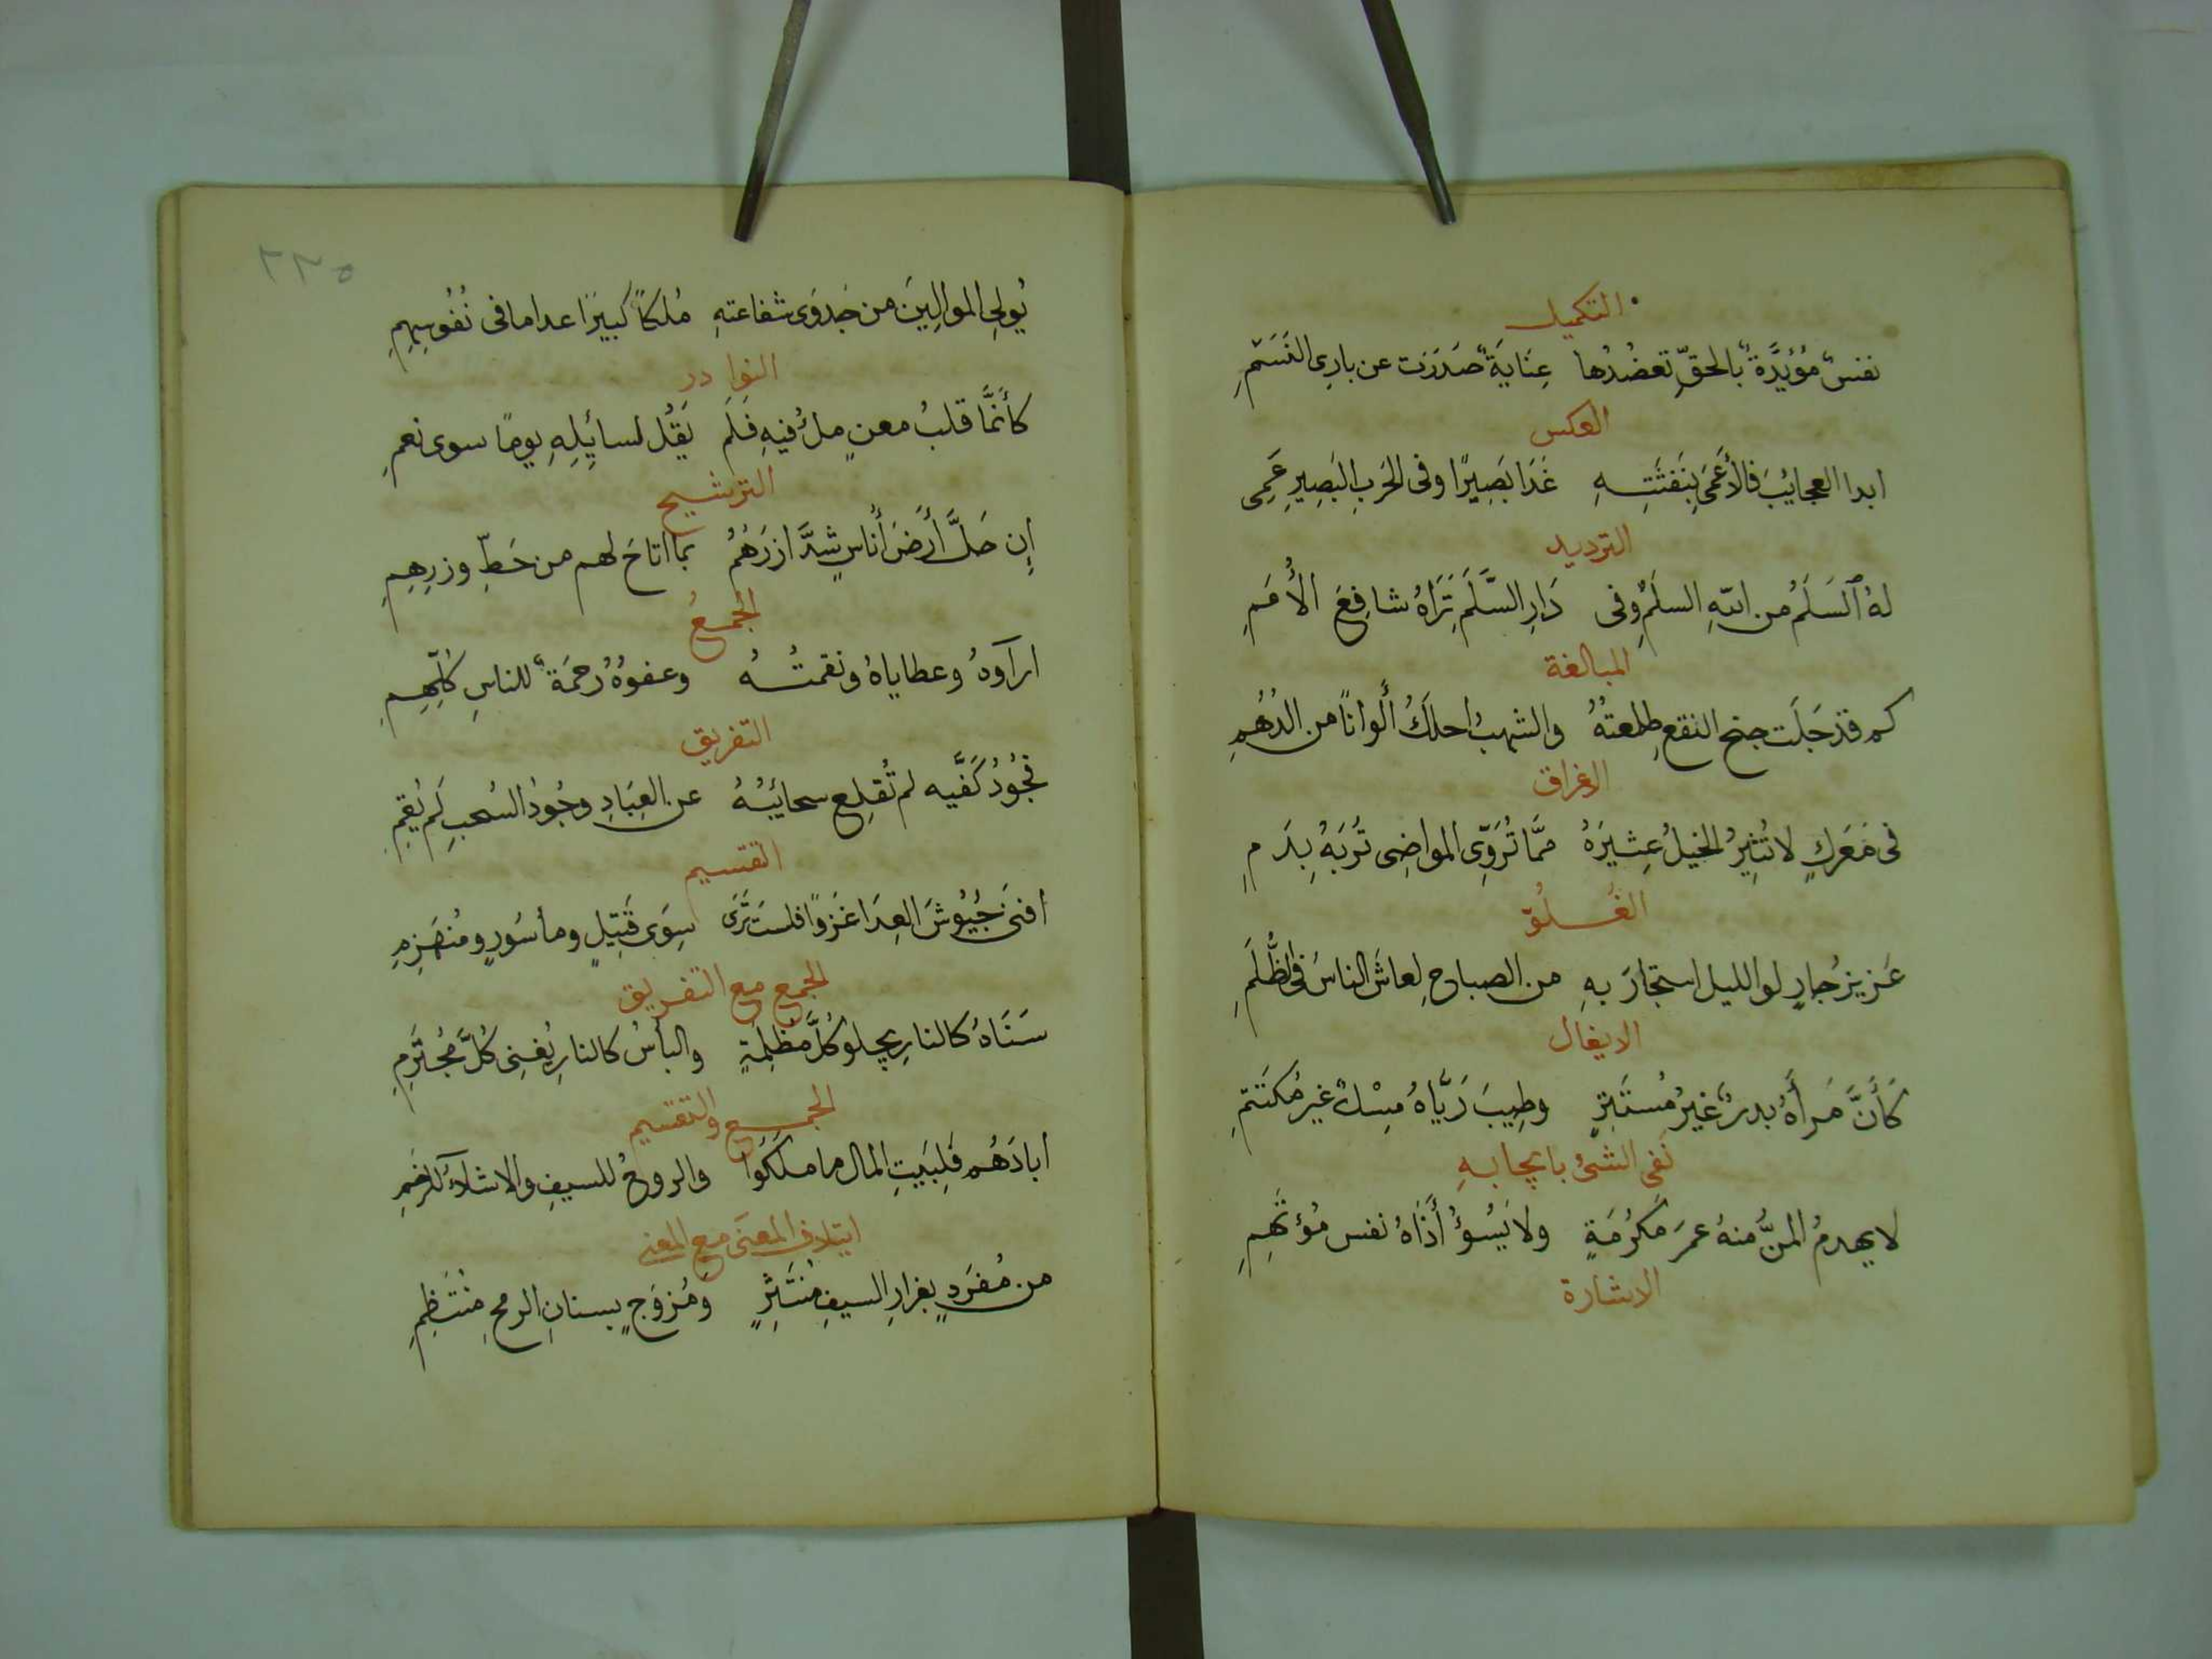 التكميل
نفسٌ مُؤيَّدةٌ بالحقِّ تعضُدُها عِنَايَةٌ صَدَرَت عن بارِي النَسَمِ
العكس
ابدا العجايبَ فالأعمَى بِنَفثَتِهِ غَدَا بَصِيرًا وفى الحَربِ البَصِيرِ عَمِى
الترديد
لهُ السَلَمُ من اللهِ السلَمِ وفى دَارِ السَّلَمِ تَرَاهُ شافِعَ الأُمَمِ
المبالغة
كم قد جَلَت جنح النقعِ طلعتُهُ والشهبُ احلَكُ أَلوانًا من الدُهُمِ
الاغراق
فى مَعرَكٍ لا تُثِيرُ الخيلُ عِثِيرَهُ ممَّا تُرَوِّى المواضِى تُربَهُ بِدَمِ
الغُلُوّ
عَزيزُ جارٍ لو الليل استجارَ بهِ من الصباحِ لعاشَ الناسُ فى الظُّلَمِ
الايغال
كَأَنَّ مَرأهُ بدرٌ غيرُ مُستَتِرٍ وطِيبَ رَيَّاهُ مِسْكٌ غير مُكتَتَمِ
نَفى الشئ بايجابهِ
لا يهدمُ المنُّ منهُ عمرَ مَكرُمَةٍ ولا يَسُؤُ أَذَاهُ نفس مُؤتَهِمِ
الاشارة
٢٢٥
يُولِى الموالِينَ من جَدوَى شفاعتهِ مُلكًا كبيرًا عدا ما فى نُفُوسِهِمِ
النوادر
كأنَّمَّا قلبُ معنٍ ملُ فيهِ فَلَم يَقُل لسائِلِهِ يومًا سوى نعمِ
الترشيح
إن حَلَّ أَرضَ أُناسٍ شدَّ ازرَهُمُ بما اتاحَ لهم من حَطِّ وزرِهِمِ
الجمعُ
اراَوهُ وعطاياهُ ونقمتُهُ وعفوهُ رحمَةٌ للناسِ كُلِّهِمِ
التفريق
فجُودُ كَفَّيه لم تُقلِع سحائبُهُ عن العِبَادِ وجُودُ السُحبِ لَم يُقِمِ
التقسيم
افنَى جُيُوشَ العِدَا غَزوًا فلستَ تَرَى سِوَى قَتِيلٍ ومأسُورٍ ومُنهَزِمِ
الجمع مع التفريق
سَنَاهُ كالنارِ يجلو كُلَّ مُظلِمَةٍ والبأسُ كالنارِ يُفنِى كُلَّ مُجتَرِمِ
الجمع والتقسيم
ابادَهُم فَلِبَيتِ المال ما مَلَكُوا والروحُ للسيفِ والاشلاَءُ للرخَمِ
ايتلاف المعنَى مع المعنى
من مُفرَدٍ بغرارِ السيفِ مُنتَثِرٍ ومُزوَجٍ بسنانِ الرمحِ مُنتَظِمِ